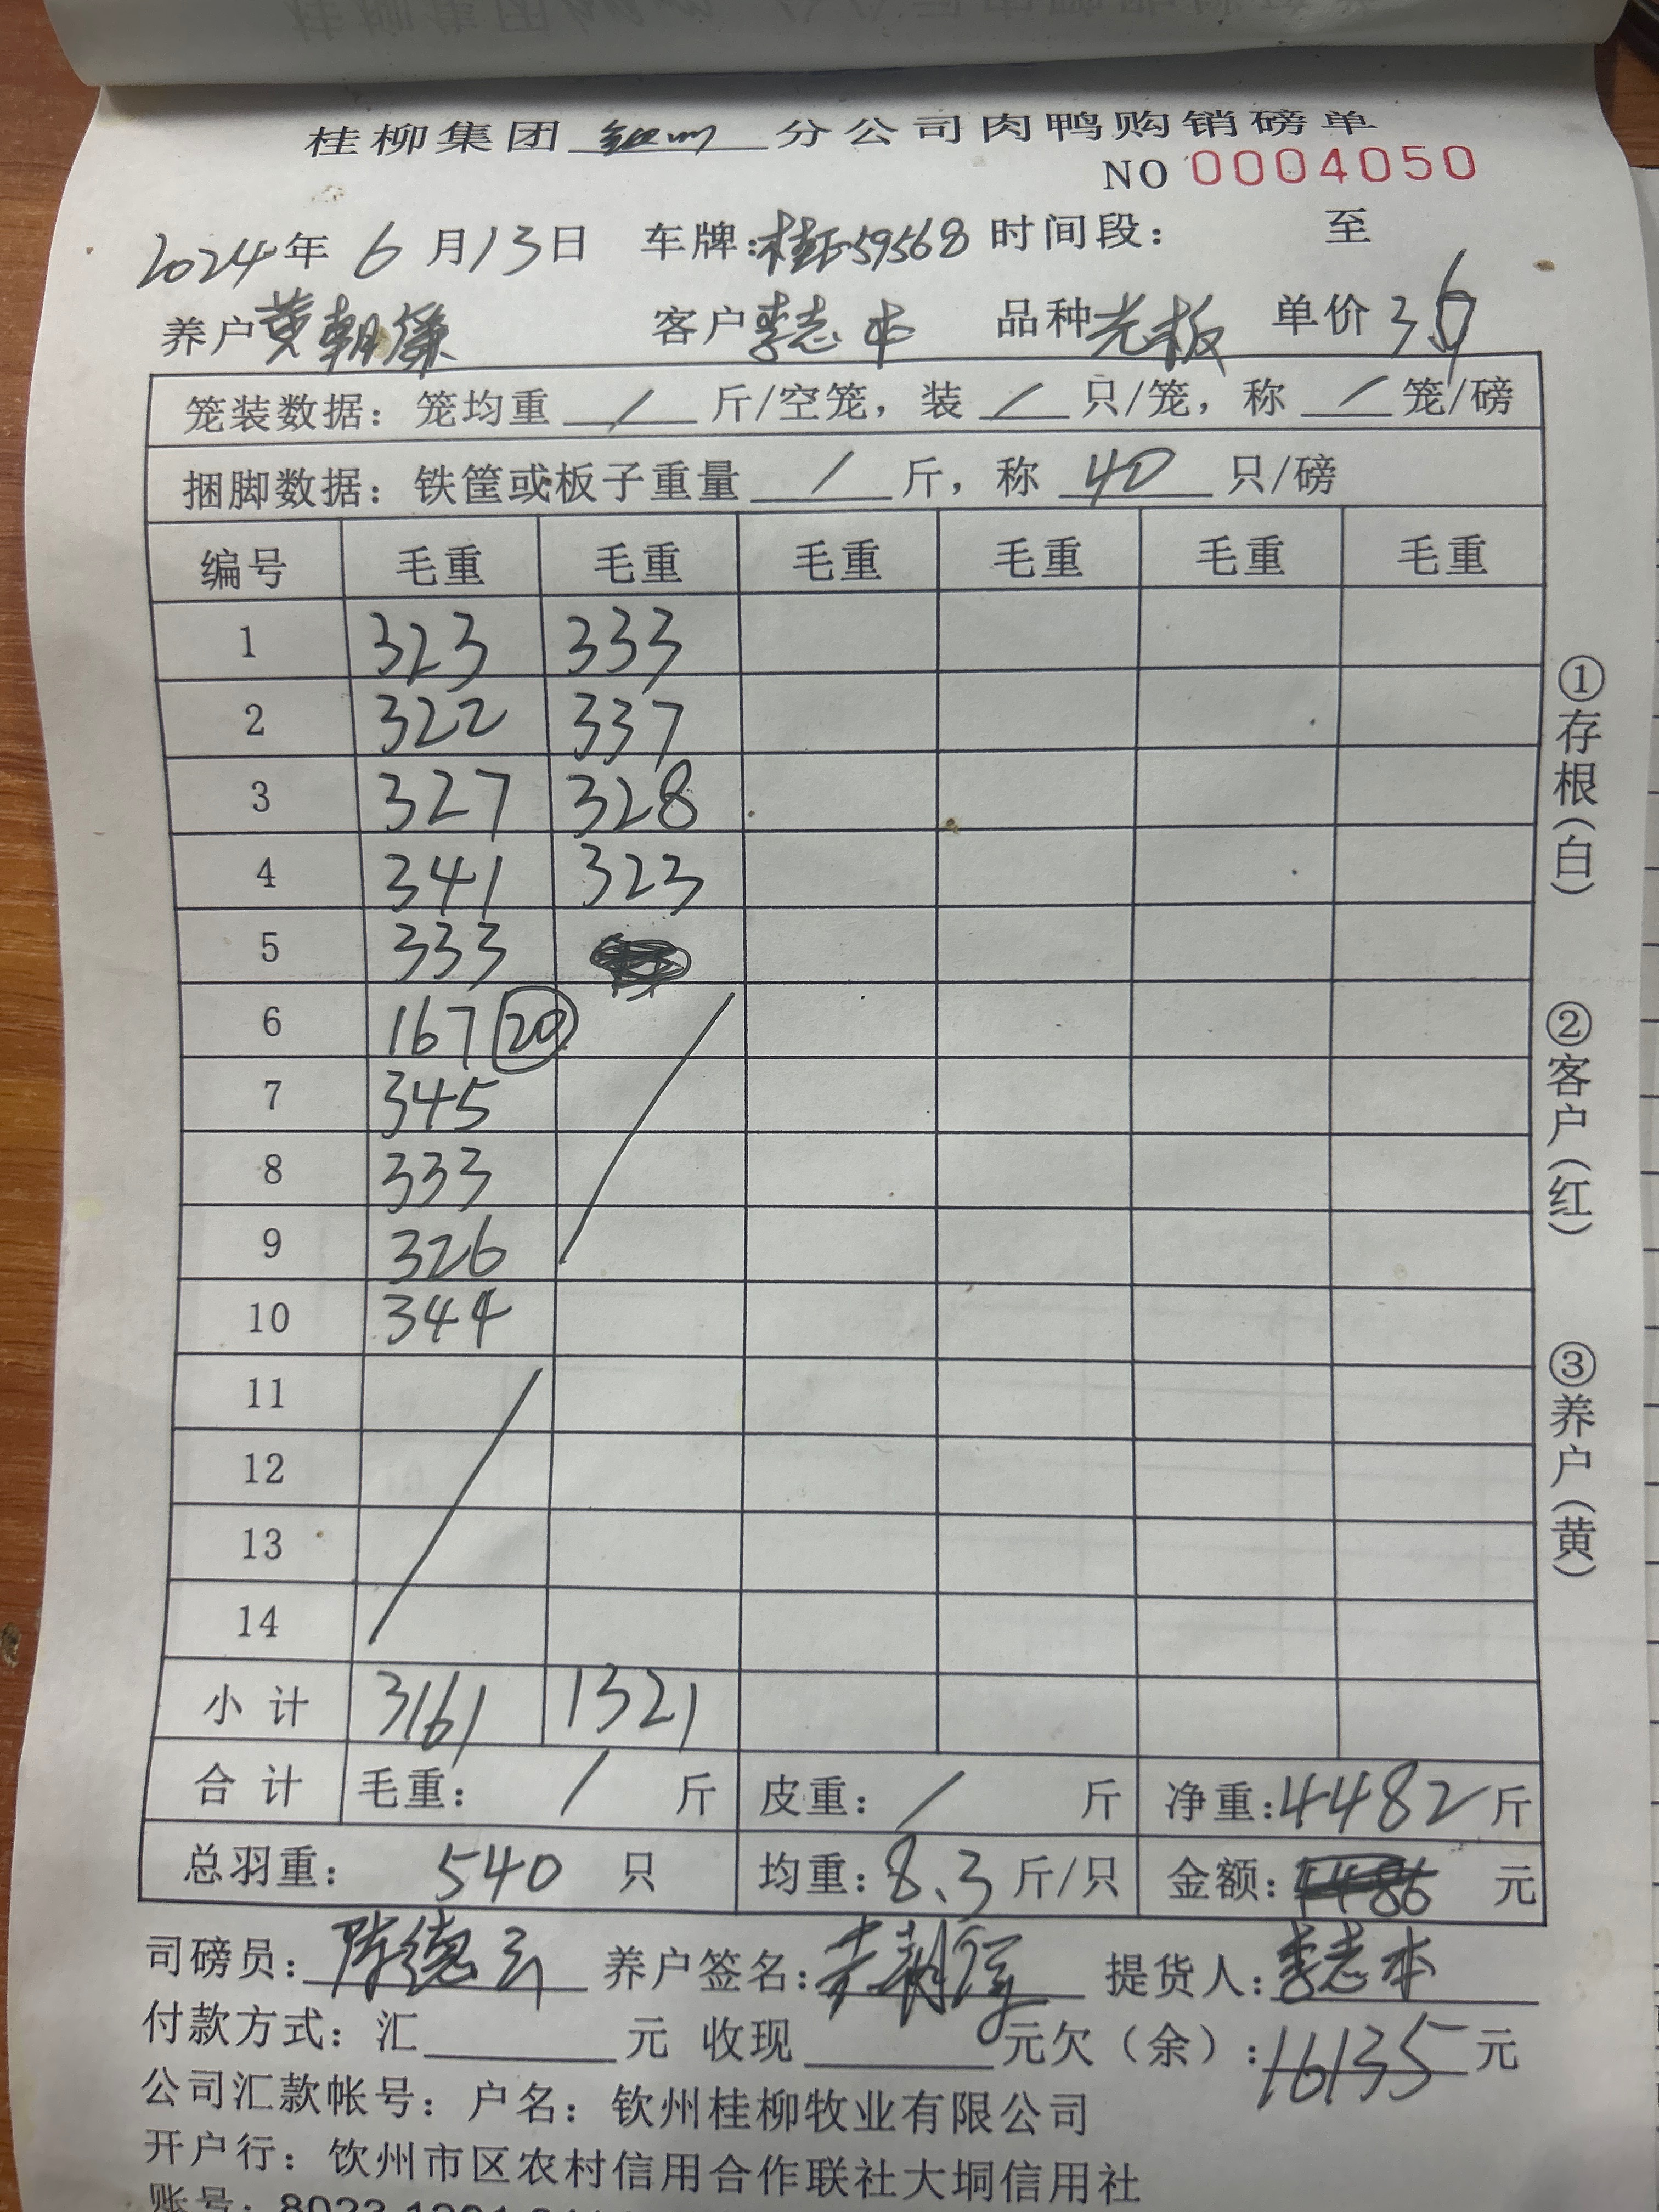 桂柳集团 钦州 分公司肉鸭购销磅单
NO 0004050
2024年 6月13日 车牌:桂 59568 时间段: 至
养户 黄朝 客户 李志本 品种 光板 单价 3.6
笼装数据: 笼均重 / 斤/空笼, 装 / 只/笼, 称 / 笼/磅
捆脚数据: 铁筐或板子重量 / 斤, 称 40 只/磅
编号 毛重 毛重 毛重 毛重 毛重 毛重
1 323 333
2 322 337
3 327 328
4 341 323
5 333
6 167 20
7 345
8 333
9 326
10 344
11
12
13
14
小 计 3161 1321
合 计 毛重: / 斤 皮重: / 斤 净重:4482斤
总羽重: 540 只 均重:8.3斤/只 金额: 元
司磅员: 陈德云 养户签名: 黄朝 提货人: 李志本
付款方式: 汇 元 收现 元欠(余):16135元
公司汇款帐号: 户名: 钦州桂柳牧业有限公司
开户行: 钦州市区农村信用合作联社大垌信用社
账号: 8023
①存根(白)
②客户(红)
③养户(黄)